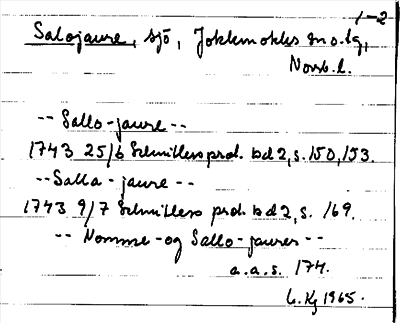 1-2
Salojaure, sjö, Jokkmokks sn o. lg,
Norrb. l.
-- Sallo-jaure --
1743 25/6 Schnitlers prot. bd 2, s. 150, 153.
-- Salla-jaure --
1743 9/7 Schnitlers prot. bd 2, s. 169.
-- Nomme- og Sallo-jaurer --
a.a.s. 174.
1965.